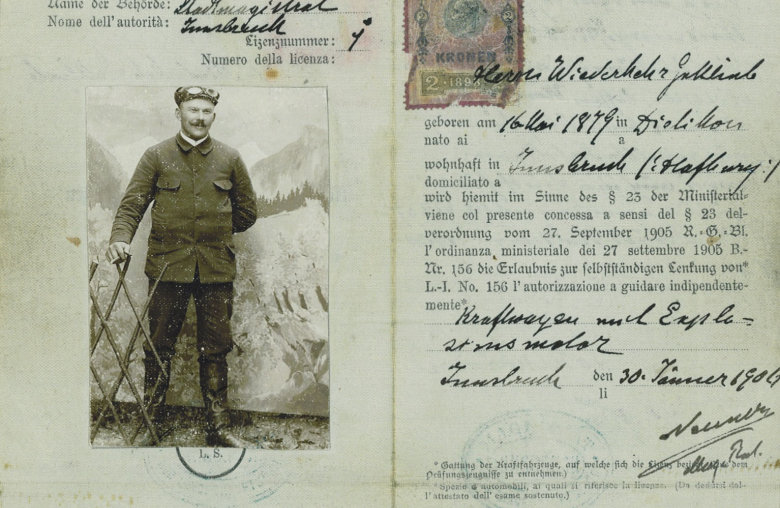 Name der Behörde: Stadtmagistrat
Nome dell'autorità: Innsbruck
Lizenznummer:
Numero della licenza:
L. S.
KRONEN
2
Herrn Wiederkehr Gottlieb
geboren am 16 Mai 1879 in Dietikon
nato ai a
wohnhaft in Innsbruck (:Hofburg:)
domiciliato a
wird hiemit im Sinne des § 23 der Ministerial-
viene col presente concessa a sensi del § 23 del-
verordnung vom 27. September 1905 R.-G.-Bl.
l'ordinanza ministeriale dei 27 settembre 1905 B.-
Nr. 156 die Erlaubnis zur selbstständigen Lenkung von*
L.-I. No. 156 l'autorizzazione a guidare indipendente-
mente*
Kraftwagen mit Explo-
sionsmotor
Innsbruck den 30. Jänner 1906
li
* Gattung der Kraftfahrzeuge, auf welche sich die Lizenz bezieht
Prüfungszeugnisse zu entnehmen.)
* Spezie d'automobili, ai quali si riferisce la licenza. (Da desumersi dal-
l'attestato dell'esame sostenuto.)